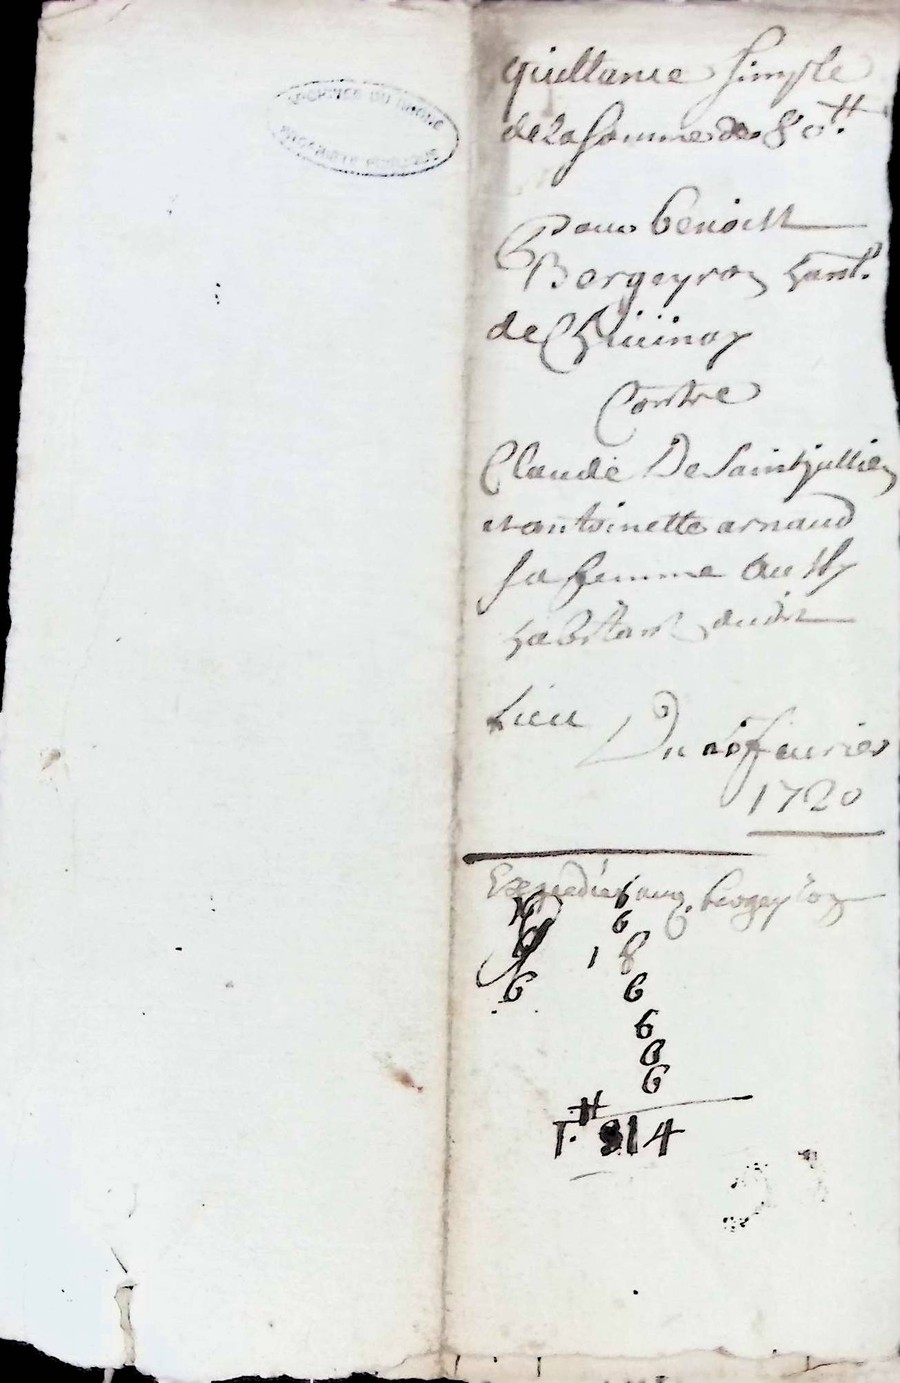 ARCHIVES DU RHONE
quittance simple
de la somme de 80 ₶.
Pour benoist
Bergeyron hant.
de
Contre
Claude De Saintjullien
et antoinette arnaud
sa femme aussy
habitant dudit
Lieu
Du fevrier
1720
Expediée aud. bergeyron
6
6
1 8
6
6
6
6
6
1.₶ 14